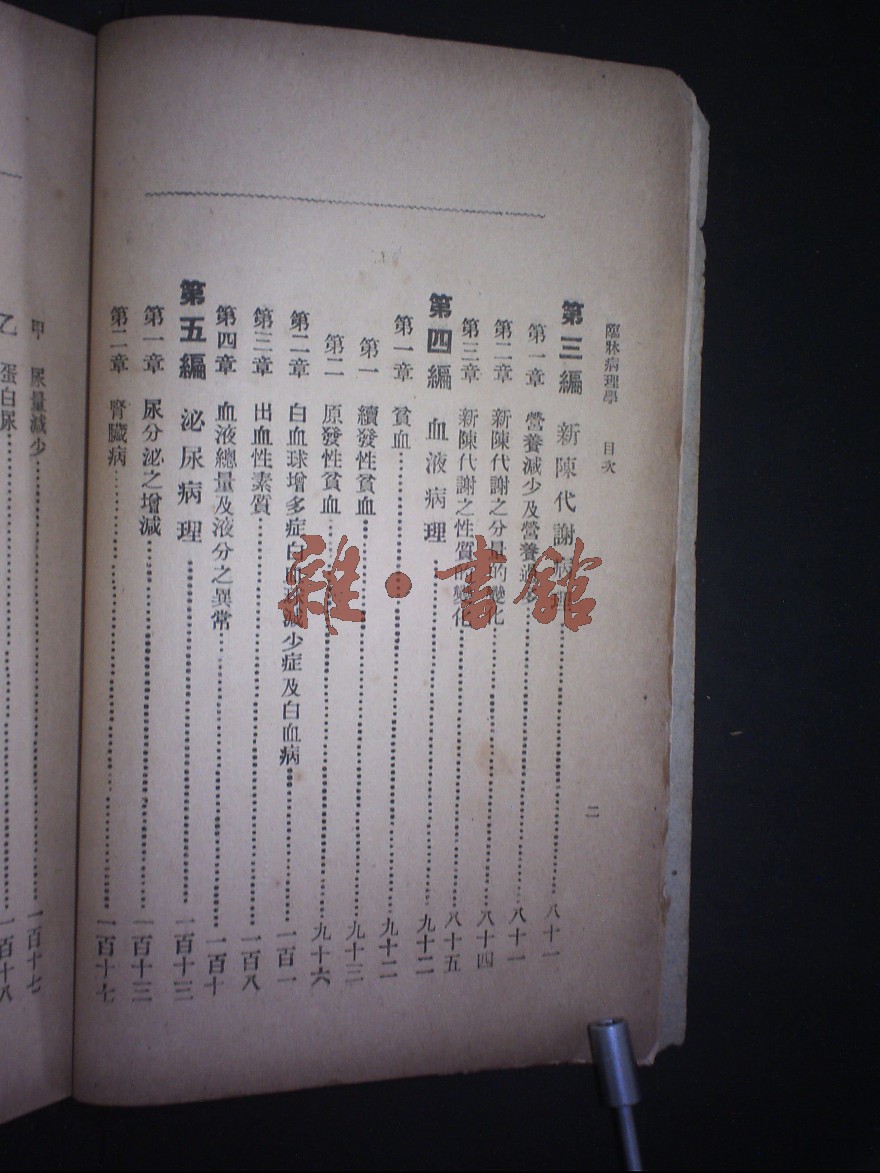 臨牀病理學　目次
二
第三編　新陳代謝病理……八十一
第一章　營養減少及營養過多……八十一
第二章　新陳代謝之分量的變化……八十四
第三章　新陳代謝之性質的變化……八十五
第四編　血液病理……九十二
第一章　貧血……九十二
第一　續發性貧血……九十三
第二　原發性貧血……九十六
第二章　白血球增多症白血球減少症及白血病……一百一
第三章　出血性素質……一百八
第四章　血液總量及液分之異常……一百十
第五編　泌尿病理……一百十三
第一章　尿分泌之增減……一百十三
第二章　腎臟病……一百十七
甲　尿量減少……一百十七
乙　蛋白尿……一百十八
雜·書館